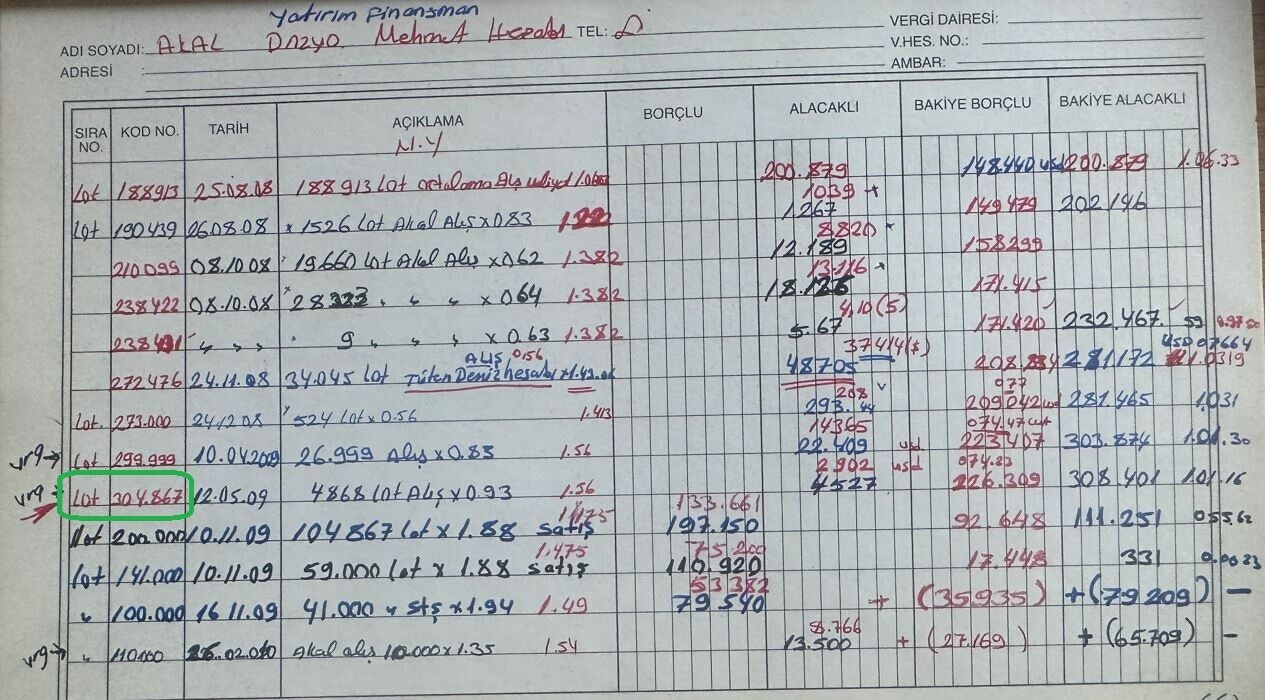 Yatırım Finansman
ADI SOYADI: AKAL Mehmet TEL:
ADRESİ :
VERGİ DAİRESİ:
V.HES. NO.:
AMBAR:
SIRA NO. KOD NO. TARİH AÇIKLAMA BORÇLU ALACAKLI BAKİYE BORÇLU BAKİYE ALACAKLI
N.Y
Lot 188913 25.08.08 188913 Lot ortalama Alış 200.879 148.440 usd 200.879 1.06.33
1039 +
Lot 190439 26.08.08 1526 Lot Akal Alış x 0.83 1267 149479 202146
8.820
210099 08.10.08 19.660 Lot Akal Alış x 0.62 1.382 12.189 158299
13.116 +
238422 08.10.08 28323 " " " x 0.64 1.382 171.415
4,10 (5)
" " " 9 " " " x 0.63 1.382 5.67 171.420 232.467. 59
ALIŞ 0.56 37414($)
272476 24.11.08 34.045 Lot Deniz hesabı 48705 281172 1.0319
208 077
Lot. 273.000 24/12 08 524 Lot x 0.56 1.413 293.44 209042 usd 281.465 1.031
14365 074.47
vrg→ Lot 299.999 10.04.2009 26.999 Alış x 0.83 1.56 22.409 usd 223407 303.874 1.01.30
2902 usd 074.23
vrg→ Lot 304.867 12.05.09 4868 Lot Alış x 0.93 1.56 4527 226.309 308401 1.01.16
1.475 133.661
Lot 200.000 10.11.09 104867 Lot x 1.88 satış 197.150 92.648 111.251 055,62
1.475 75.200
Lot 141.000 10.11.09 59.000 Lot x 1.88 satış 110.920 17.448 331 0.0023
53382
" 100.000 16 11.09 41.000 " stş x 1.94 1.49 79540 + (35935) + (79209) —
8.766
vrg→ " 110.000 26.02.010 Akal alış 10.000 x 1.35 1.54 13.500 + (27.169) + (65.709) —